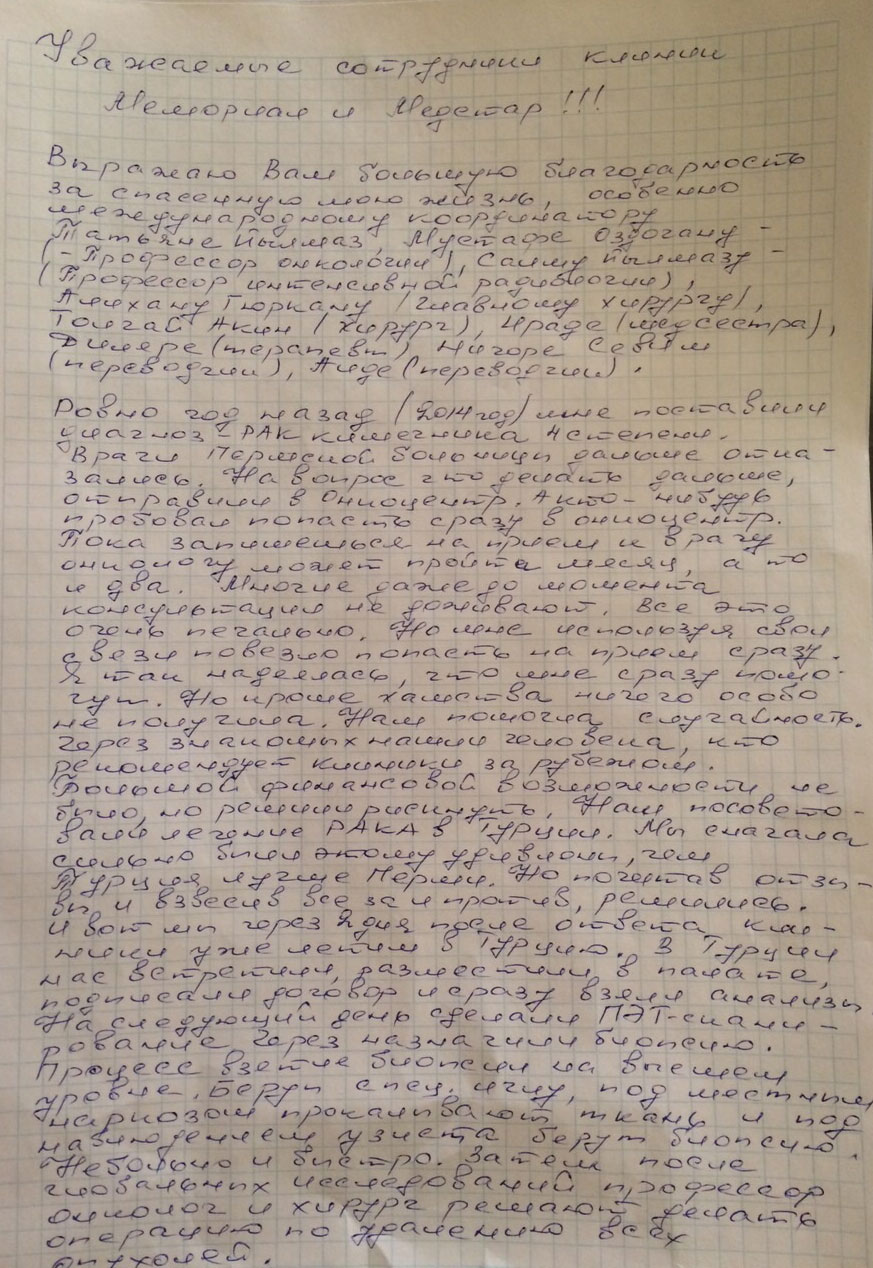 Уважаемые сотрудники клиники
Мемориал и Медстар!!!
Выражаю Вам большую благодарность
за спасенную мою жизнь, особенно
международному координатору
Татьяне Йылмаз, Мустафе Оздогану -
(- Профессор онкологии), Саиму Йылмазу -
(Профессор интенсивной радиологии),
Алихану Гюркану (главному хирургу),
Толгай Акин (хирург), Ираде (медсестра),
Диляре (терапевт), Нигоре Севим
(переводчик), Аиде (переводчик).
Ровно год назад (2014 год) мне поставили
диагноз - РАК кишечника 4 степени.
Врачи Пермской больницы дальше отка-
зались. На вопрос что делать дальше,
отправили в Онкоцентр. А кто-нибудь
пробовал попасть сразу в онкоцентр.
Пока запишешься на прием к врачу
онкологу может пройти месяц, а то
и два. Многие даже до момента
консультации не доживают. Все это
очень печально. Но мне используя свои
связи повезло попасть на прием сразу.
Я так надеялась, что мне сразу помо-
гут. Но кроме хамства ничего особо
не получила. Нам помогла случайность.
Через знакомых нашли человека, кто
рекомендует клиники за рубежом.
Большой финансовой возможности не
было, но решили рискнуть. Нам посовето-
вали лечение РАКА в Турции. Мы сначала
сильно были этому удивлены, чем
Турция лучше Перми. Но почитав отзы-
вы и взвесив все за и против, решились.
И вот мы через 2 дня после ответа кли-
ники уже летим в Турцию. В Турции
нас встретили, разместили в палате,
подписали договор и сразу взяли анализы
На следующий день сделали ПЭТ-скани-
рование. Через назначили биопсию.
Процесс взятие биопсии на высшем
уровне. Берут спец. иглу, под местным
наркозом прокалывают ткань и под
наблюдением узиста берут биопсию.
Небольно и быстро. Затем после
глобальных исследований профессор
онколог и хирург решают делать
операцию по удалению всех
опухолей.